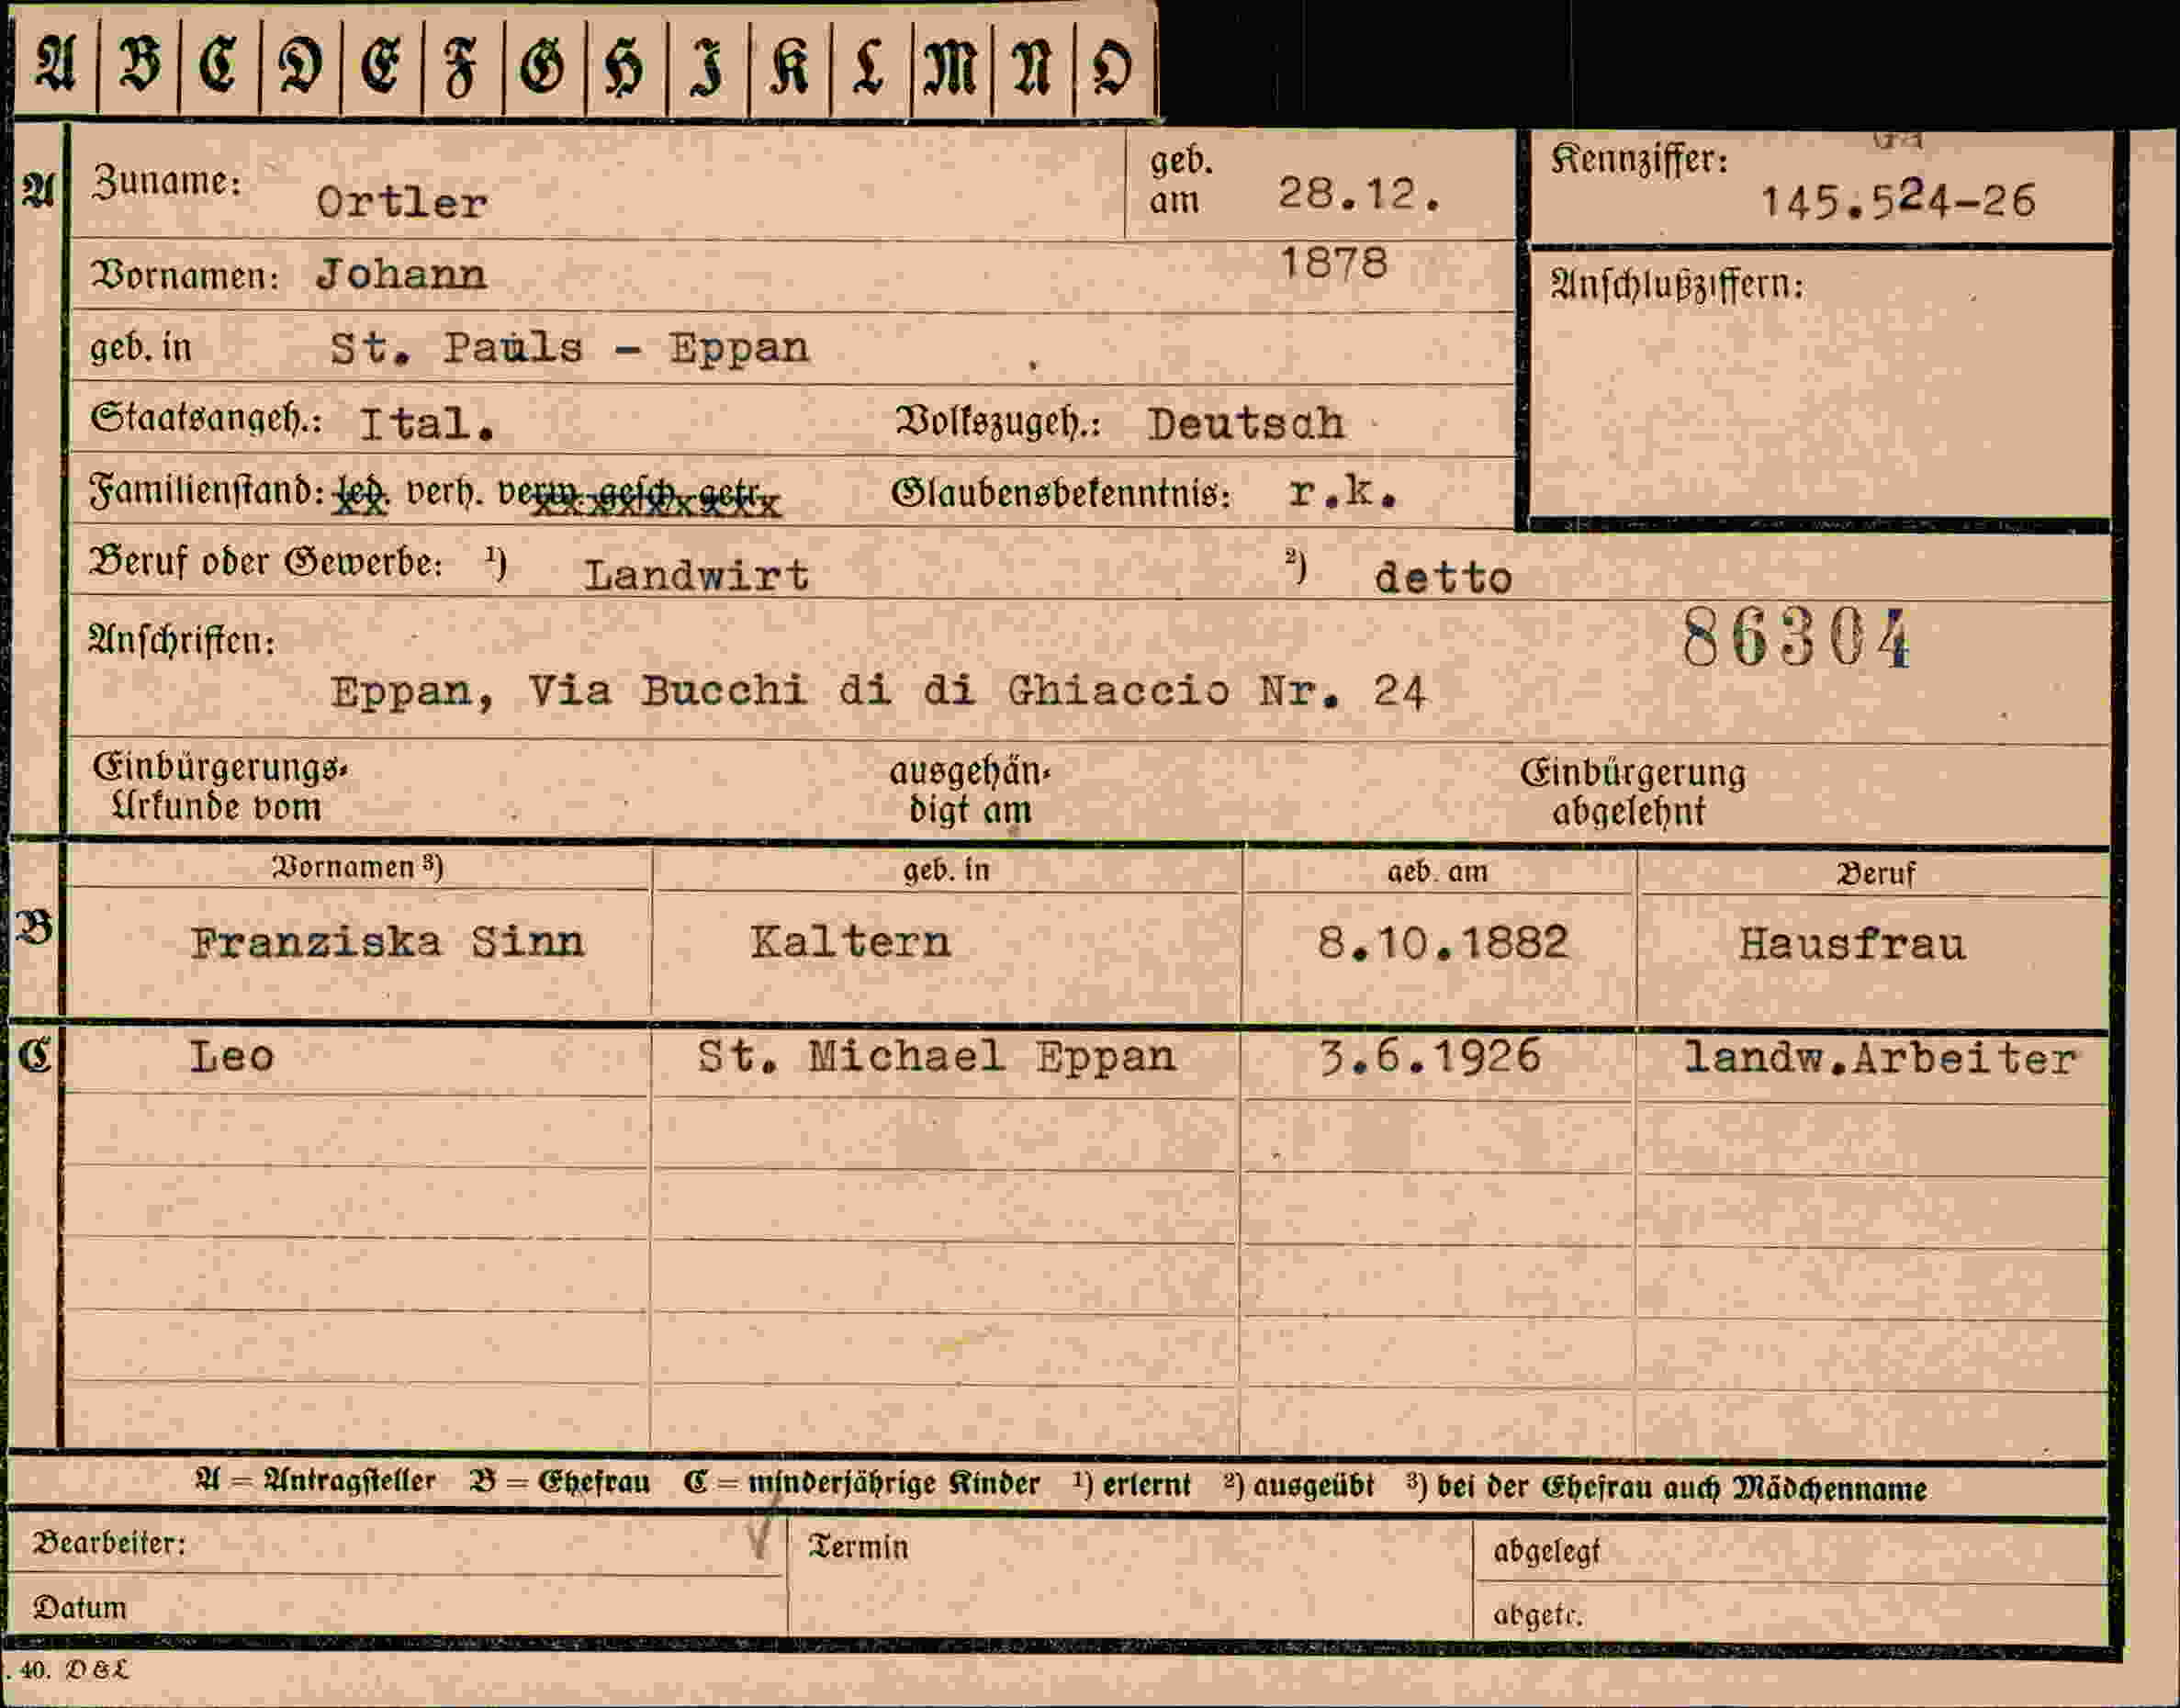 A B C D E F G H I K L M N O
A Zuname: Ortler geb. am 28.12. 1878 Kennziffer: 145.524-26
Vornamen: Johann Anschlußziffern:
geb. in St. Pauls - Eppan
Staatsangeh.: Ital. Volkszugeh.: Deutsch
Familienstand: led. verh. verw. gesch. getr. Glaubensbekenntnis: r.k.
Beruf oder Gewerbe: ¹) Landwirt ²) detto
Anschriften: 86304
Eppan, Via Bucchi di di Ghiaccio Nr. 24
Einbürgerungs- ausgehän- Einbürgerung
Urkunde vom digt am abgelehnt
Vornamen ³) geb. in geb. am Beruf
B Franziska Sinn Kaltern 8.10.1882 Hausfrau
C Leo St. Michael Eppan 3.6.1926 landw.Arbeiter
A = Antragsteller B = Ehefrau C = minderjährige Kinder ¹) erlernt ²) ausgeübt ³) bei der Ehefrau auch Mädchenname
Bearbeiter: Termin abgelegt
Datum abgetr.
. 40. D & L